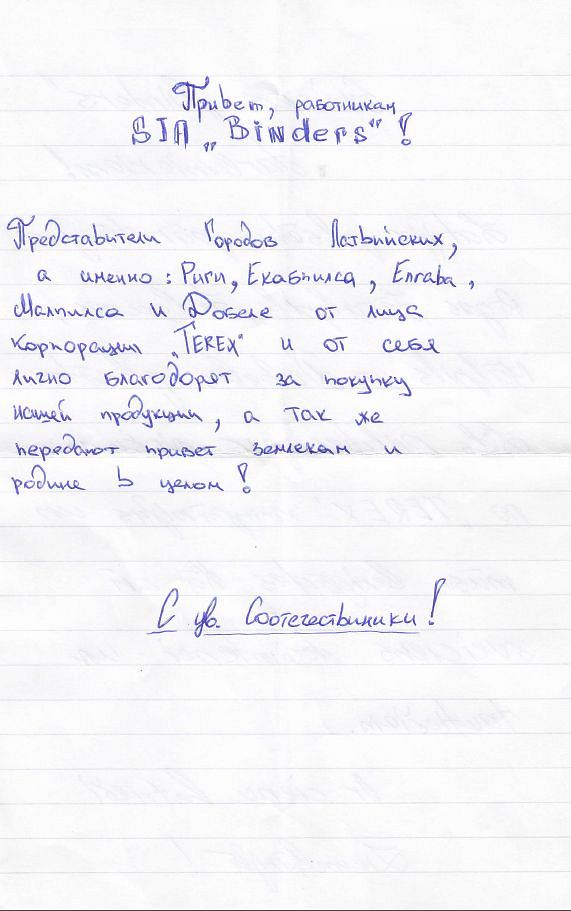 Привет, работникам
SIA „Binders"!
Представители Городов Латвийских,
а именно: Риги, Екабпилса, Елгава,
Малпилса и Добеле от лица
Корпорации „TEREX" и от себя
лично благодорят за покупку
нашей продукции, а так же
передают привет землекам и
родине в целом!
С ув. Соотечествиники!